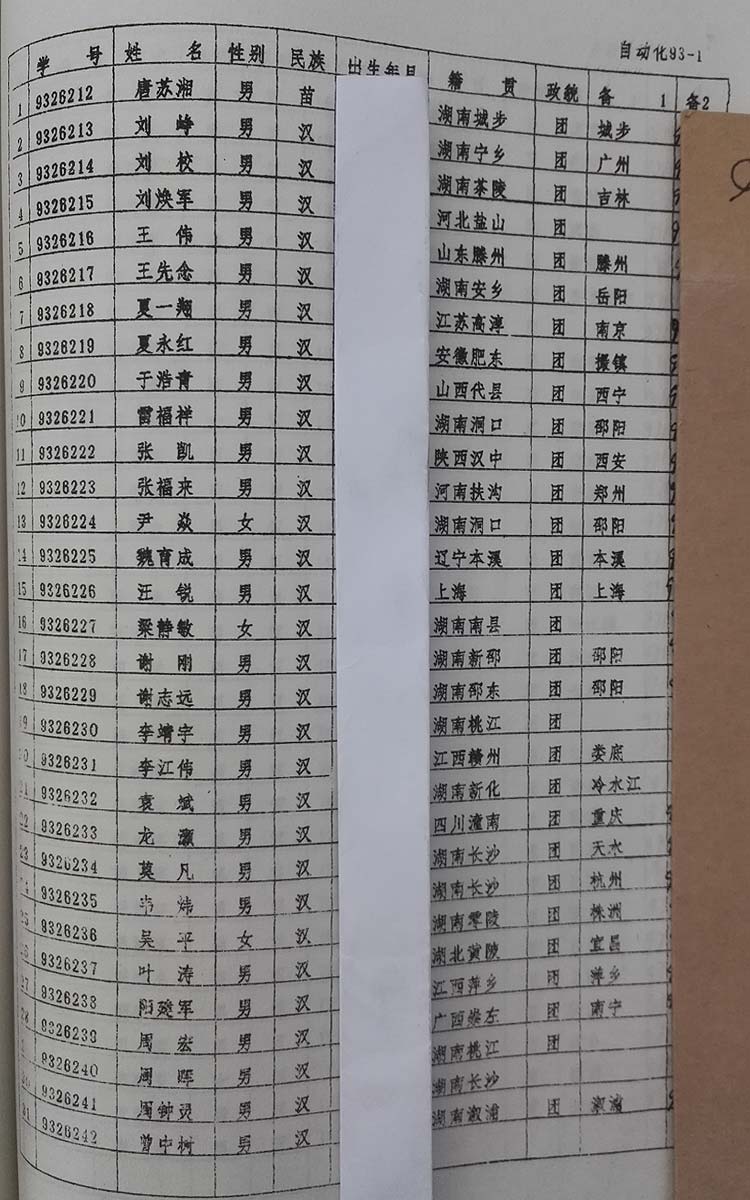 自动化93-1
学 号 姓 名 性别 民族 出生年月 籍 贯 政统 备 1 备2
1 9326212 唐苏湘 男 苗 湖南城步 团 城步
2 9326213 刘 峥 男 汉 湖南宁乡 团 广州
3 9326214 刘 校 男 汉 湖南茶陵 团 吉林
4 9326215 刘焕军 男 汉 河北盐山 团
5 9326216 王 伟 男 汉 山东滕州 团 滕州
6 9326217 王先念 男 汉 湖南安乡 团 岳阳
7 9326218 夏一翔 男 汉 江苏高淳 团 南京
8 9326219 夏永红 男 汉 安徽肥东 团 撮镇
9 9326220 于浩青 男 汉 山西代县 团 西宁
10 9326221 雷福祥 男 汉 湖南洞口 团 邵阳
11 9326222 张 凯 男 汉 陕西汉中 团 西安
12 9326223 张福来 男 汉 河南扶沟 团 郑州
13 9326224 尹 焱 女 汉 湖南洞口 团 邵阳
14 9326225 魏育成 男 汉 辽宁本溪 团 本溪
15 9326226 汪 锐 男 汉 上海 团 上海
16 9326227 梁静敏 女 汉 湖南南县 团
17 9326228 谢 刚 男 汉 湖南新邵 团 邵阳
18 9326229 谢志远 男 汉 湖南邵东 团 邵阳
19 9326230 李靖宇 男 汉 湖南桃江 团
20 9326231 李江伟 男 汉 江西赣州 团 娄底
21 9326232 袁 斌 男 汉 湖南新化 团 冷水江
22 9326233 龙 灏 男 汉 四川潼南 团 重庆
23 9326234 莫 凡 男 汉 湖南长沙 团 天水
24 9326235 炜 男 汉 湖南长沙 团 杭州
25 9326236 吴 平 女 汉 湖南零陵 团 株洲
26 9326237 叶 涛 男 汉 湖北 团 宜昌
27 9326238 阳建军 男 汉 江西萍乡 团 萍乡
28 9326239 周 宏 男 汉 广西 团 南宁
29 9326240 周 晖 男 汉 湖南桃江 团
30 9326241 周钟灵 男 汉 湖南长沙
31 9326242 曾中树 男 汉 湖南溆浦 团 溆浦